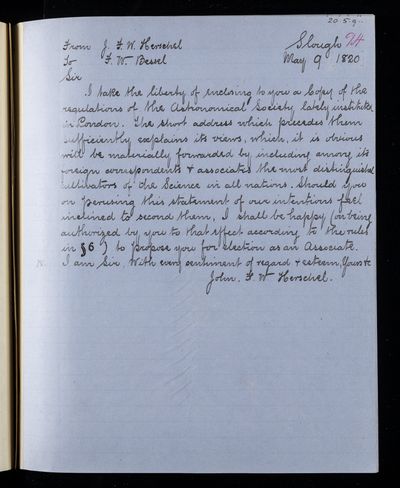 20.5.9
From J. F. W. Herschel Slough
To F. W. Bessel May 9 1820
Sir
I take the liberty of enclosing to you a Copy of the
regulations of the Astronomical Society lately instituted
in London. The short address which precedes them
sufficiently explains its views, which, it is obvious
will be materially forwarded by including among its
foreign correspondents & associates the most distinguished
cultivators of the Science in all nations. Should you
on perusing this statement of our intentions feel
inclined to second them, I shall be happy (on being
authorized by you to that effect according to the rules
in § 6) to propose you for election as an Associate.
I am Sir, With every sentiment of regard & esteem, Yours &c
John. F. W Herschel.